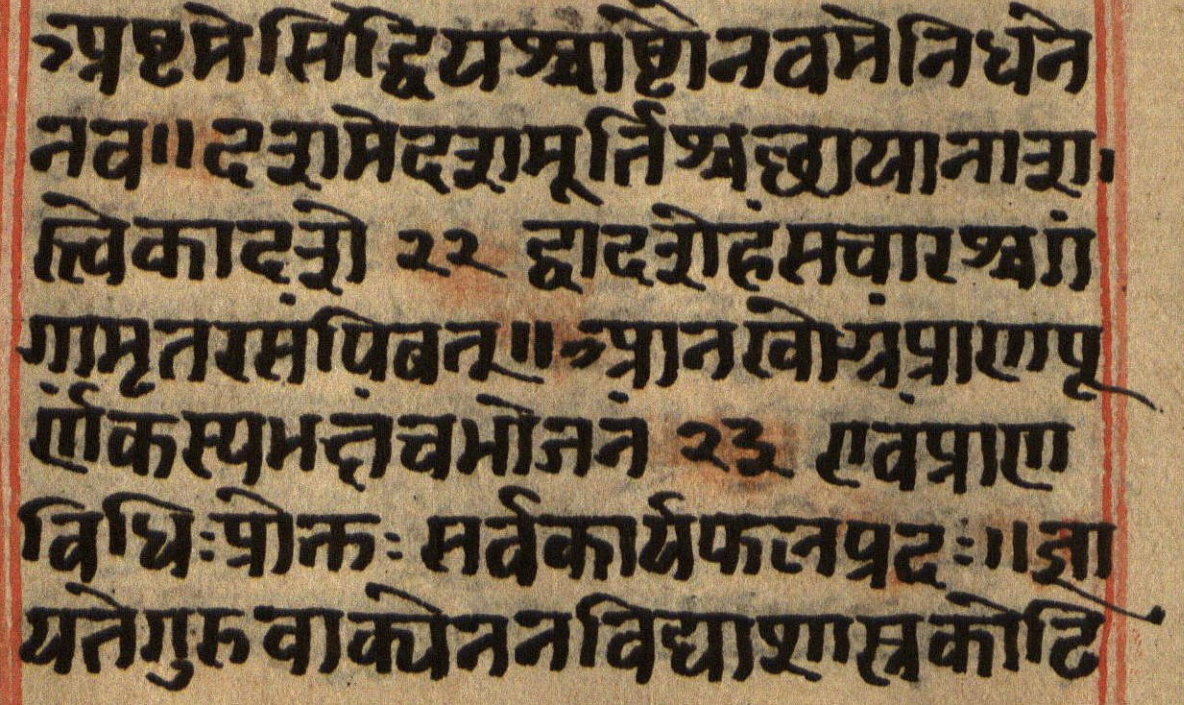 ऽष्टमे सिद्धियश्चाष्टौ नवमे निधने
नव॥ दशमे दशमूर्तिश्च छाया नाशा
त्वेकादशे २२ द्वादशे हंसचारश्च गं
गामृतरसं पिबेत्॥ आनखाग्रं प्राणपू
र्णं कस्य भक्तं च भोजनं २३ एवं प्राण
विधिः प्रोक्तः सर्वकार्यफलप्रदः॥ ज्ञा
यते गुरुवाक्येन न विद्याशास्त्रकोटि